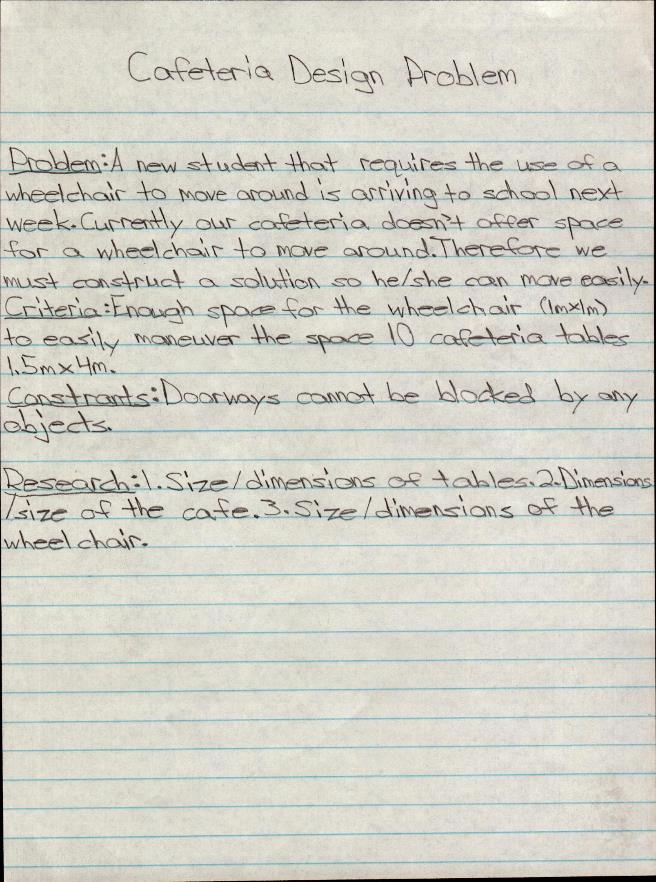 Cafeteria Design Problem
Problem: A new student that requires the use of a
wheelchair to move around is arriving to school next
week. Currently our cafeteria doesn't offer space
for a wheelchair to move around. Therefore we
must construct a solution so he/she can move easily.
Criteria: Enough space for the wheelchair (1mx1m)
to easily maneuver the space 10 cafeteria tables
1.5m x 4m.
Constrants: Doorways cannot be blocked by any
objects.
Research: 1. Size/dimensions of tables. 2. Dimensions
/size of the cafe. 3. Size/dimensions of the
wheelchair.